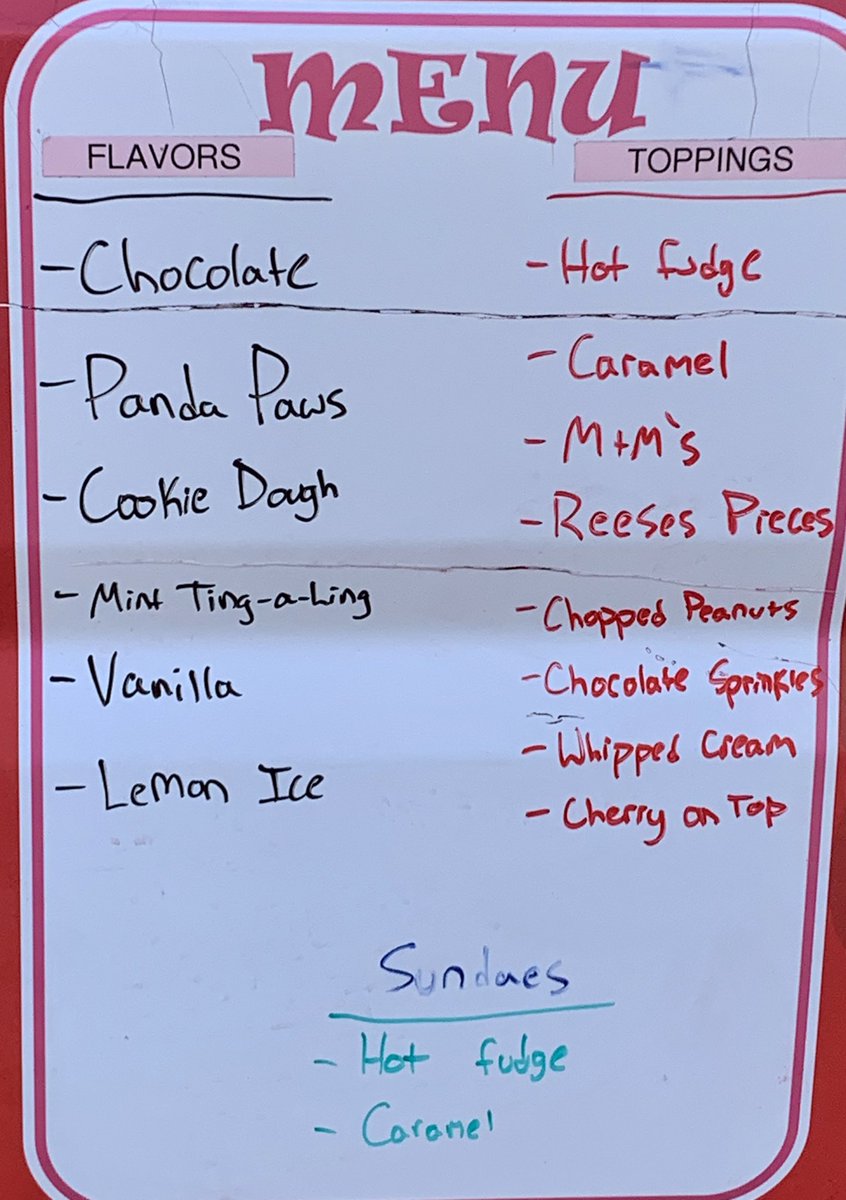 MENU
FLAVORS
- Chocolate
- Panda Paws
- Cookie Dough
- Mint Ting-a-Ling
- Vanilla
- Lemon Ice
TOPPINGS
- Hot fudge
- Caramel
- M+M's
- Reeses Pieces
- Chopped Peanuts
- Chocolate Sprinkles
- Whipped Cream
- Cherry on Top
Sundaes
- Hot fudge
- Caramel